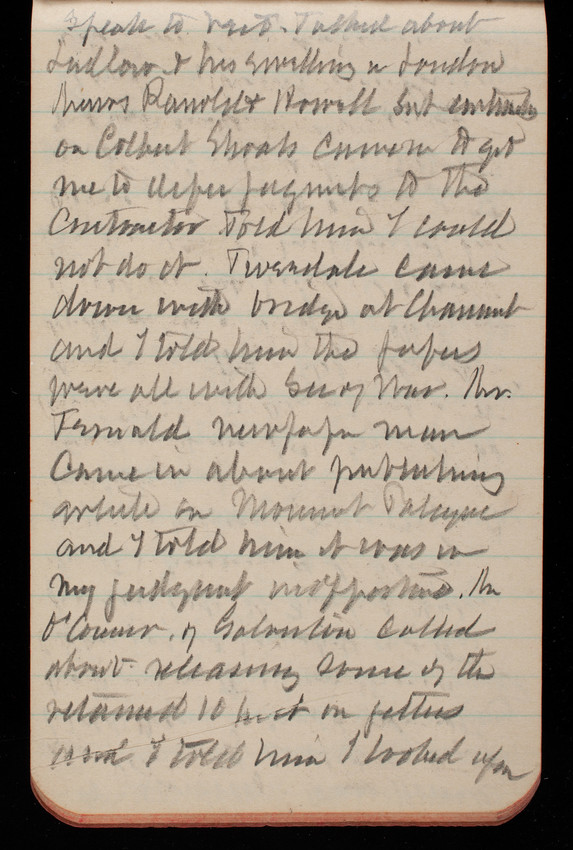 speak to . Talked about
Ludlow & his dwelling in London
Messrs Ranolds & Howell sub contractors
on Colbert Shoals came in to get
me to defer payments to the
Contractor. Told him I could
not do it. Tweedale came
down with bridge at
and I told him the papers
were all with Sec of War. Mr.
Fernald newspaper man
Came in about publishing
article on Mount
and I told him it was in
my judgment inopportune. Mr
O'Connor, of Galveston called
about releasing some of the
retained 10 on jetties
and I told him I looked upon